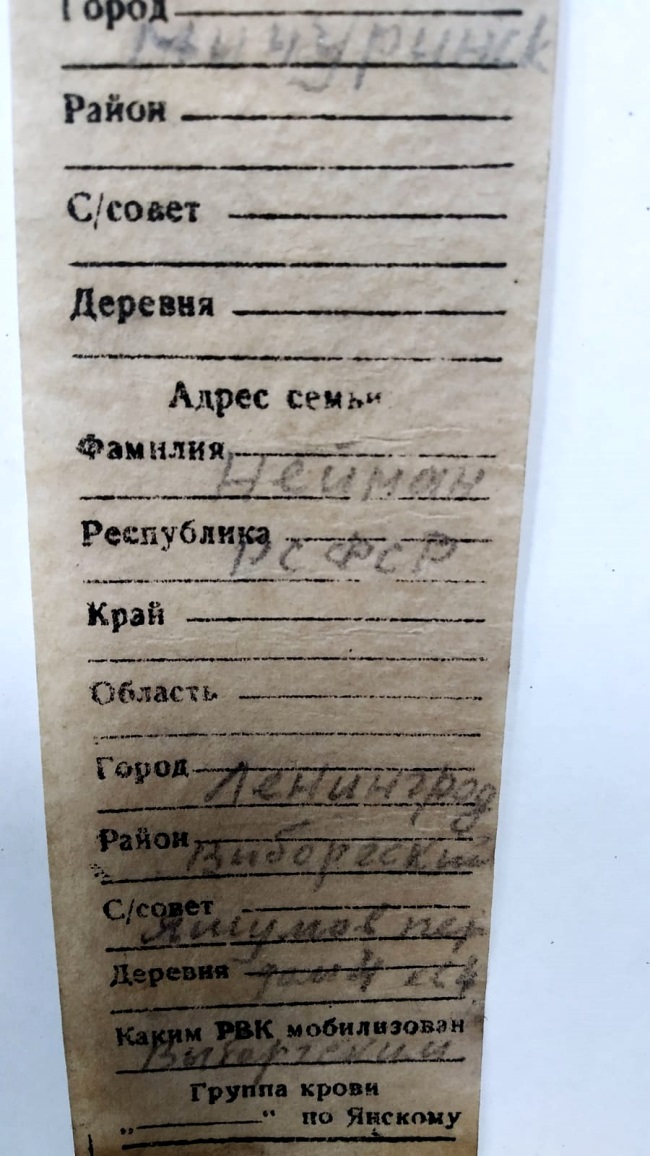 Город
Район
С/совет
Деревня
Адрес семьи
Фамилия
Нейман
Республика
РСФСР
Край
Область
Город
Ленинград
Район
Виборгский
С/совет
пер
Деревня
дом 4
Каким РВК мобилизован
Выборгским
Группа крови
„ “ по Янскому